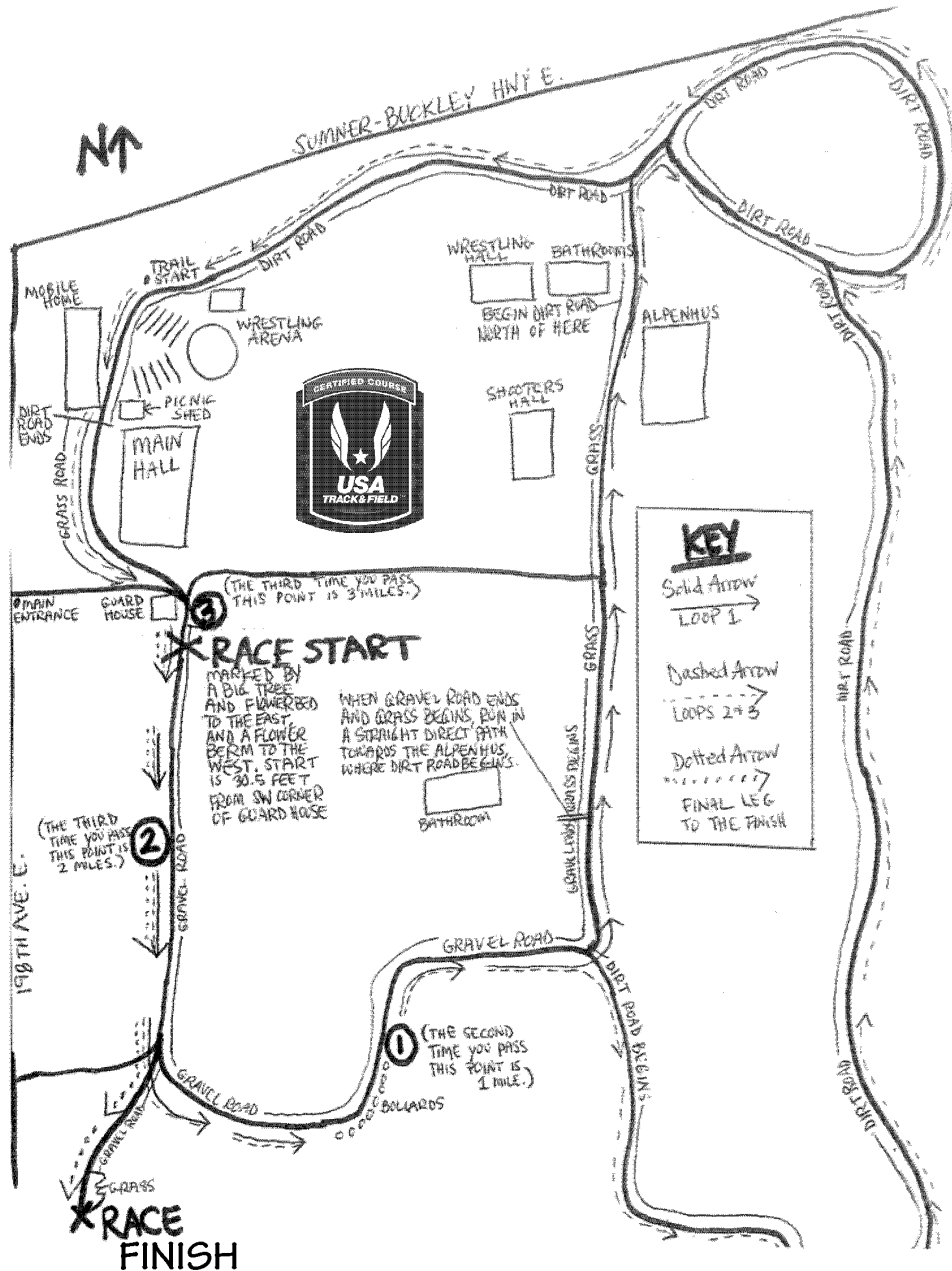 SUMNER-BUCKLEY HWY E.
N↑
DIRT ROAD
DIRT ROAD
DIRT ROAD
DIRT ROAD
DIRT ROAD
DIRT ROAD
TRAIL
START
MOBILE
HOME
WRESTLING
ARENA
WRESTLING
HALL
BATHROOMS
BEGIN DIRT ROAD
NORTH OF HERE
ALPENHUS
PICNIC
SHED
DIRT
ROAD
ENDS
MAIN
HALL
SHOOTERS
HALL
GRASS ROAD
CERTIFIED COURSE
USA
TRACK & FIELD
GRASS
KEY
Solid Arrow
LOOP 1
Dashed Arrow
LOOPS 2+3
Dotted Arrow
FINAL LEG
TO THE FINISH
MAIN
ENTRANCE
GUARD
HOUSE
3
(THE THIRD TIME YOU PASS
THIS POINT IS 3 MILES.)
RACE START
MARKED BY
A BIG TREE
AND FLOWERBED
TO THE EAST,
AND A FLOWER
BERM TO THE
WEST. START
IS 30.5 FEET
FROM SW CORNER
OF GUARD HOUSE
WHEN GRAVEL ROAD ENDS
AND GRASS BEGINS, RUN IN
A STRAIGHT DIRECT PATH
TOWARDS THE ALPENHUS,
WHERE DIRT ROAD BEGINS.
GRASS
DIRT ROAD
BATHROOM
GRAVEL ENDS
GRASS BEGINS
(THE THIRD
TIME YOU PASS
THIS POINT IS
2 MILES.)
2
GRAVEL ROAD
198TH AVE. E.
GRAVEL ROAD
DIRT ROAD BEGINS
1
(THE SECOND
TIME YOU PASS
THIS POINT IS
1 MILE.)
BOLLARDS
GRAVEL ROAD
GRAVEL ROAD
DIRT ROAD
GRASS
RACE
FINISH